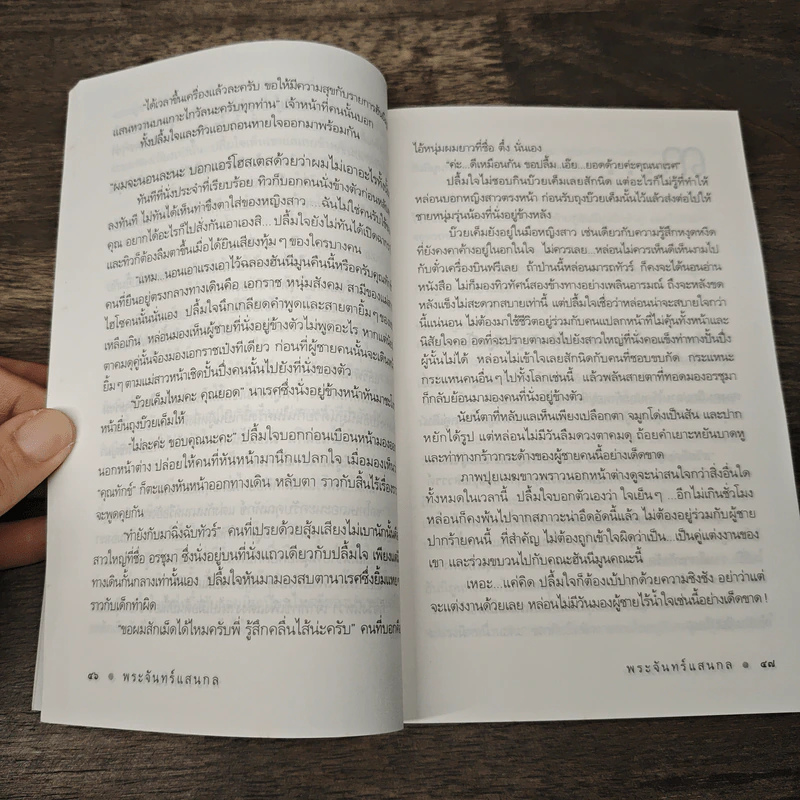 "ได้เวลาขึ้นเครื่องแล้วละครับ ขอให้มีความสุขกับรายการ
แสนหวานบนเกาะไกวัลนะครับทุกท่าน" เจ้าหน้าที่คนนั้นบอก
ทั้งปลื้มใจและทิวแอบถอนหายใจออกมาพร้อมกัน
"ผมจะนอนละนะ บอกแอร์โฮสเตสด้วยว่าผมไม่เอาอะไรทั้งนั้น
ทันทีที่นั่งประจำที่เรียบร้อย ทิวก็บอกคนนั่งข้างตัวก่อน
ลงทันที ไม่ทันได้เห็นท่าขึงตาใส่ของหญิงสาว ...ฉันไม่ใช่คนรับใช้
คุณ อยากได้อะไรก็ไปสั่งกันเอาเองสิ... ปลื้มใจยังไม่ทันได้เปิดฉาก
และทิวก็ต้องลืมตาขึ้นเมื่อได้ยินเสียงทุ้มๆ ของใครบางคน
"แหม...นอนเอาแรงเอาไว้ฉลองฮันนีมูนคืนนี้หรือครับคุณ
คนที่ยืนอยู่ตรงกลางทางเดินคือ เอกราช หนุ่มสังคม สามีของแม่
ไฮโซคนนั้นนั่นเอง ปลื้มใจนึกเกลียดคำพูดและสายตายิ้มๆ ของ
เหลือเกิน หล่อนมองเห็นผู้ชายที่นั่งอยู่ข้างตัวไม่พูดอะไร หากแต่
ตาคมดุคู่นั้นจ้องมองเอกราชเป๋งทีเดียว ก่อนที่ผู้ชายคนนั้นจะเดิน
ยิ้มๆ ตามแม่สาวหน้าเชิดปั้นปึ่งคนนั้นไปยังที่นั่งของตัว
"บ๊วยเค็มไหมคะ คุณยอด" นาเรศซึ่งนั่งอยู่ข้างหน้าหันมา
หน้ายื่นถุงบ๊วยเค็มให้
"ไม่ละค่ะ ขอบคุณนะคะ" ปลื้มใจบอกก่อนเบือนหน้ามอง
นอกหน้าต่าง ปล่อยให้คนที่หันหน้ามานึกแปลกใจ เมื่อมองเห็น
"คุณทักข์" ก็ตะแคงหันหน้าออกทางเดิน หลับตา ราวกับสิ้นไร้เรื่อง
จะพูดคุยกัน
"ทำยังกับมาฉิ่งฉับทัวร์" คนที่เปรยด้วยสุ้มเสียงไม่เบานักนั้น
สาวใหญ่ที่ชื่อ อรชุมา ซึ่งนั่งอยู่บนที่นั่งแถวเดียวกับปลื้มใจ เพียงแต่
ทางเดินกั้นกลางเท่านั้นเอง ปลื้มใจหันมามองสบตานาเรศซึ่งยิ้มแหย
ราวกับเด็กทำผิด
"ขอผมสักเม็ดได้ไหมครับพี่ รู้สึกคลื่นไส้น่ะครับ" คนที่บอก
๔๖ พระจันทร์แสนกล
ไอ้หนุ่มผมยาวที่ชื่อ ตึ๋ง นั่นเอง
"ค่ะ...ดีเหมือนกัน ขอปลื้ม เอ๊ย...ยอดด้วยค่ะคุณนาเรศ"
ปลื้มใจไม่ชอบกินบ๊วยเค็มเลยสักนิด แต่อะไรก็ไม่รู้ที่ทำให้
หล่อนบอกหญิงสาวตรงหน้า ก่อนรับถุงบ๊วยเค็มนั้นไว้แล้วส่งต่อไปให้
ชายหนุ่มรุ่นน้องที่นั่งอยู่ข้างหลัง
บ๊วยเค็มยังอยู่ในมือหญิงสาว เช่นเดียวกับความรู้สึกหงุดหงิด
ที่ยังคงคาค้างอยู่ในอกในใจ ไม่ควรเลย...หล่อนไม่ควรเห็นดีเห็นงามไป
กับตั๋วเครื่องบินฟรีเลย ถ้าป่านนี้หล่อนมารถทัวร์ ก็คงจะได้นอนอ่าน
หนังสือ ไม่ก็มองทิวทัศน์สองข้างทางอย่างเพลินอารมณ์ ถึงจะหลังขด
หลังแข็งไม่สะดวกสบายเท่านี้ แต่ปลื้มใจเชื่อว่าหล่อนน่าจะสบายใจกว่า
นี้แน่นอน ไม่ต้องมาใช้ชีวิตอยู่ร่วมกับคนแปลกหน้าที่ไม่คุ้นทั้งหน้าและ
นิสัยใจคอ อดที่จะปรายตามองไปยังสาวใหญ่ที่นั่งคอแข็งท่าทางปั้นปึ่ง
ผู้นั้นไม่ได้ หล่อนไม่เข้าใจเลยสักนิดกับคนที่ชอบขบกัด กระแหนะ
กระแหนคนอื่นๆ ไปทั้งโลกเช่นนี้ แล้วพลันสายตาที่ทอดมองอรชุมา
ก็กลับย้อนมามองคนที่นั่งอยู่ข้างตัว
นัยน์ตาที่หลับแลเห็นเพียงเปลือกตา จมูกโด่งเป็นสัน และปาก
หยักได้รูป แต่หล่อนไม่มีวันลืมดวงตาคมดุ ถ้อยคำเยาะหยันบาดหู
และท่าทางกร้าวกระด้างของผู้ชายคนนี้อย่างเด็ดขาด
ภาพปุยเมฆขาวพราวนอกหน้าต่างดูจะน่าสนใจกว่าสิ่งอื่นใด
ทั้งหมดในเวลานี้ ปลื้มใจบอกตัวเองว่า ใจเย็นๆ ...อีกไม่เกินชั่วโมง
หล่อนก็คงพ้นไปจากสภาวะน่าอึดอัดนี้แล้ว ไม่ต้องอยู่ร่วมกับผู้ชาย
ปากร้ายคนนี้ ที่สำคัญ ไม่ต้องถูกเข้าใจผิดว่าเป็น...เป็นคู่แต่งงานของ
เขา และร่วมขบวนไปกับคณะฮันนีมูนคณะนี้
เหอะ...แค่คิด ปลื้มใจก็ต้องเบ้ปากด้วยความชิงชัง อย่าว่าแต่
จะแต่งงานด้วยเลย หล่อนไม่มีวันมองผู้ชายไร้น้ำใจเช่นนี้อย่างเด็ดขาด !
พระจันทร์แสนกล ๔๗